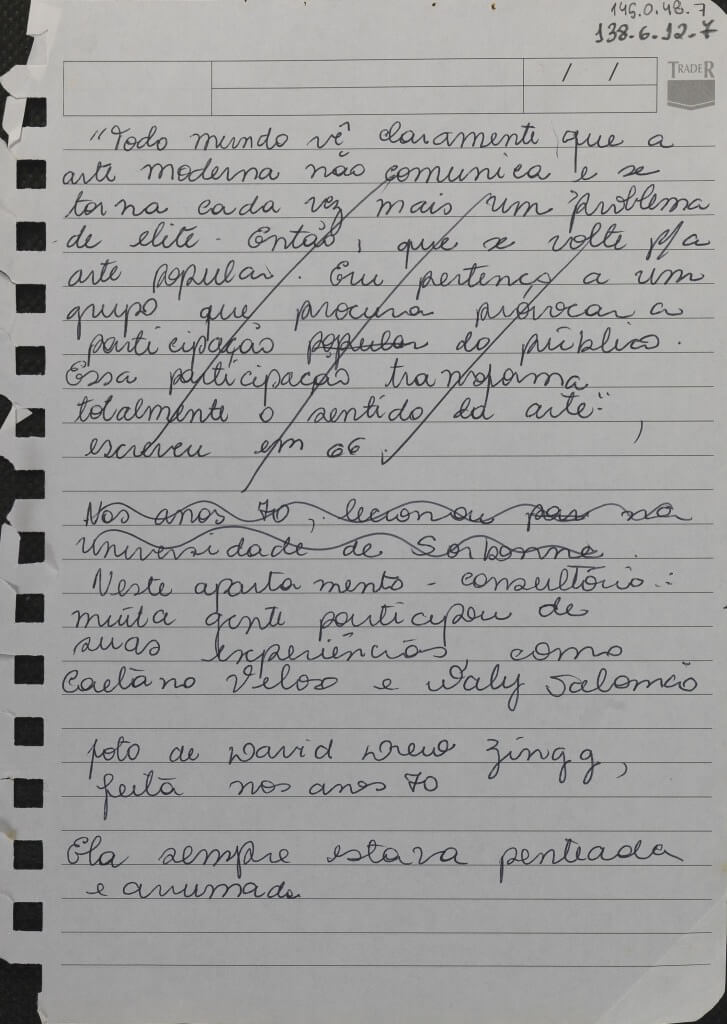 145.0.48.7
138-6-12-7
/ /
TRADER
"Todo mundo vê claramente que a
arte moderna não comunica e se
torna cada vez mais um problema
de elite. Então, que se volte p/a
arte popular. Eu pertenço a um
grupo que procura provocar a
participação popular do público.
Essa participação transforma
totalmente o sentido da arte",
escreveu em 66.
Nos anos 70, lecionou par na
Universidade de Sorbonne.
Neste apartamento-consultório
muita gente participou de
suas experiências, como
Caetano Veloso e Waly Salomão
foto de David Drew Zingg,
feita nos anos 70
Ela sempre estava penteada
e arrumada